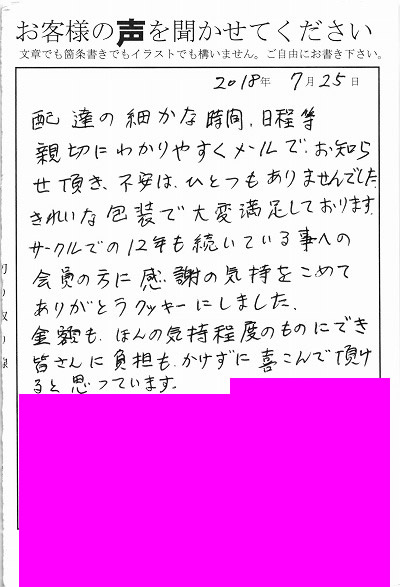 お客様の声を聞かせてください
文章でも箇条書きでもイラストでも構いません。ご自由にお書き下さい。
2018年 7月25日
配達の細かな時間、日程等
親切にわかりやすくメールで、お知ら
せ頂き、不安は、ひとつもありませんでした。
きれいな包装で大変満足しております。
サークルでの12年も続いている事への
会員の方に感謝の気持をこめて
ありがとうクッキーにしました、
金額も、ほんの気持程度のものにでき
皆さんに負担も、かけずに喜こんで頂け
ると思っています。